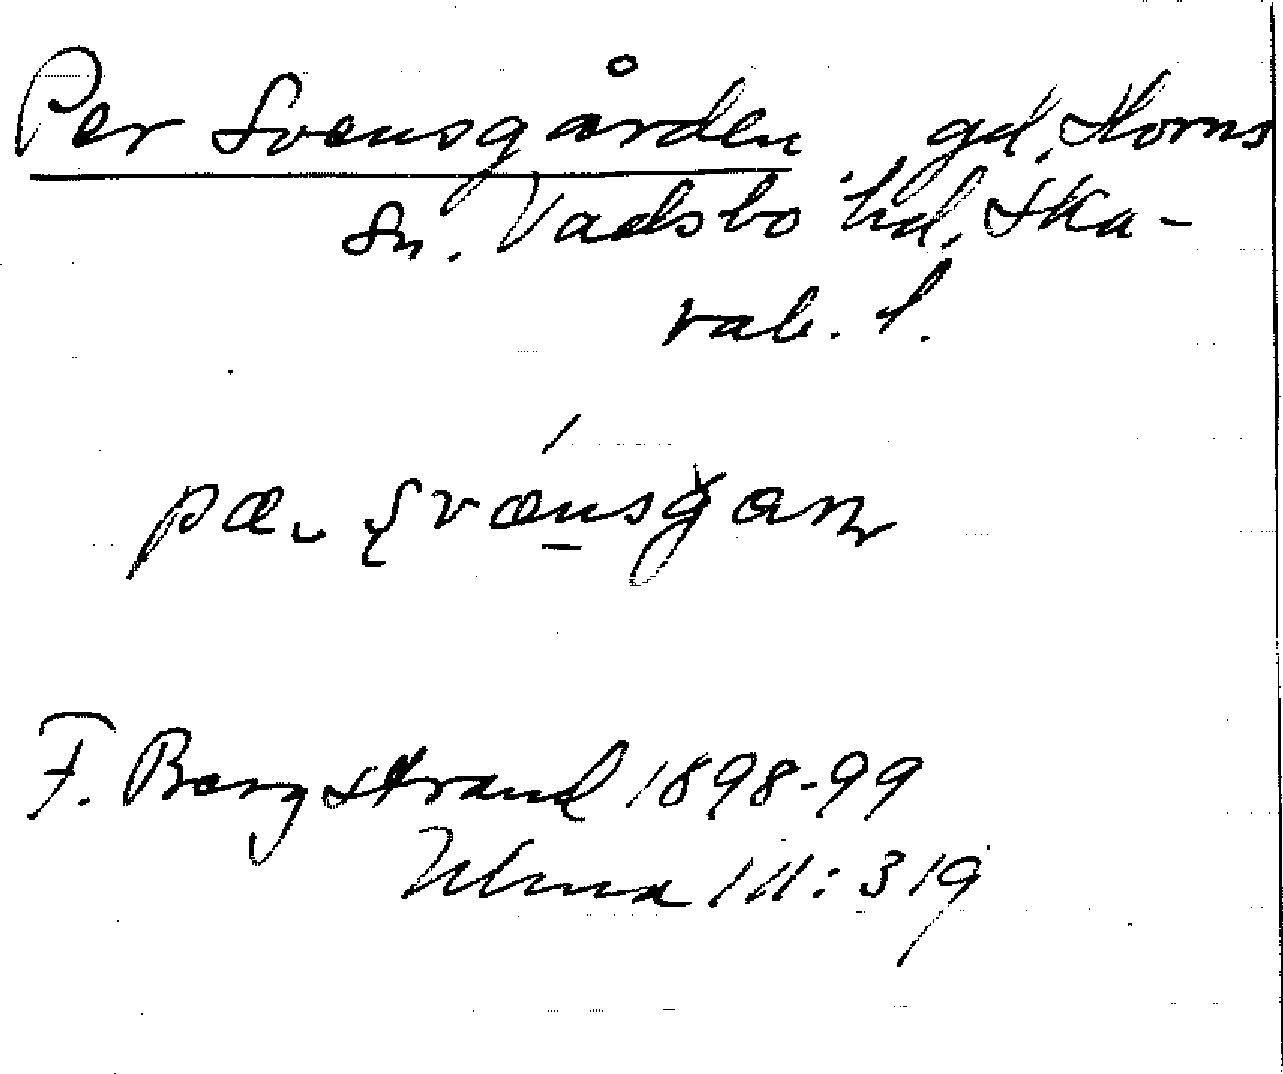 Per Svensgården gd, Horns
Sn. Vadsbo hd, Ska-
rab. l.
pæ, svænsgan
F. Bergstrand 1898-99
Ulma 111:319